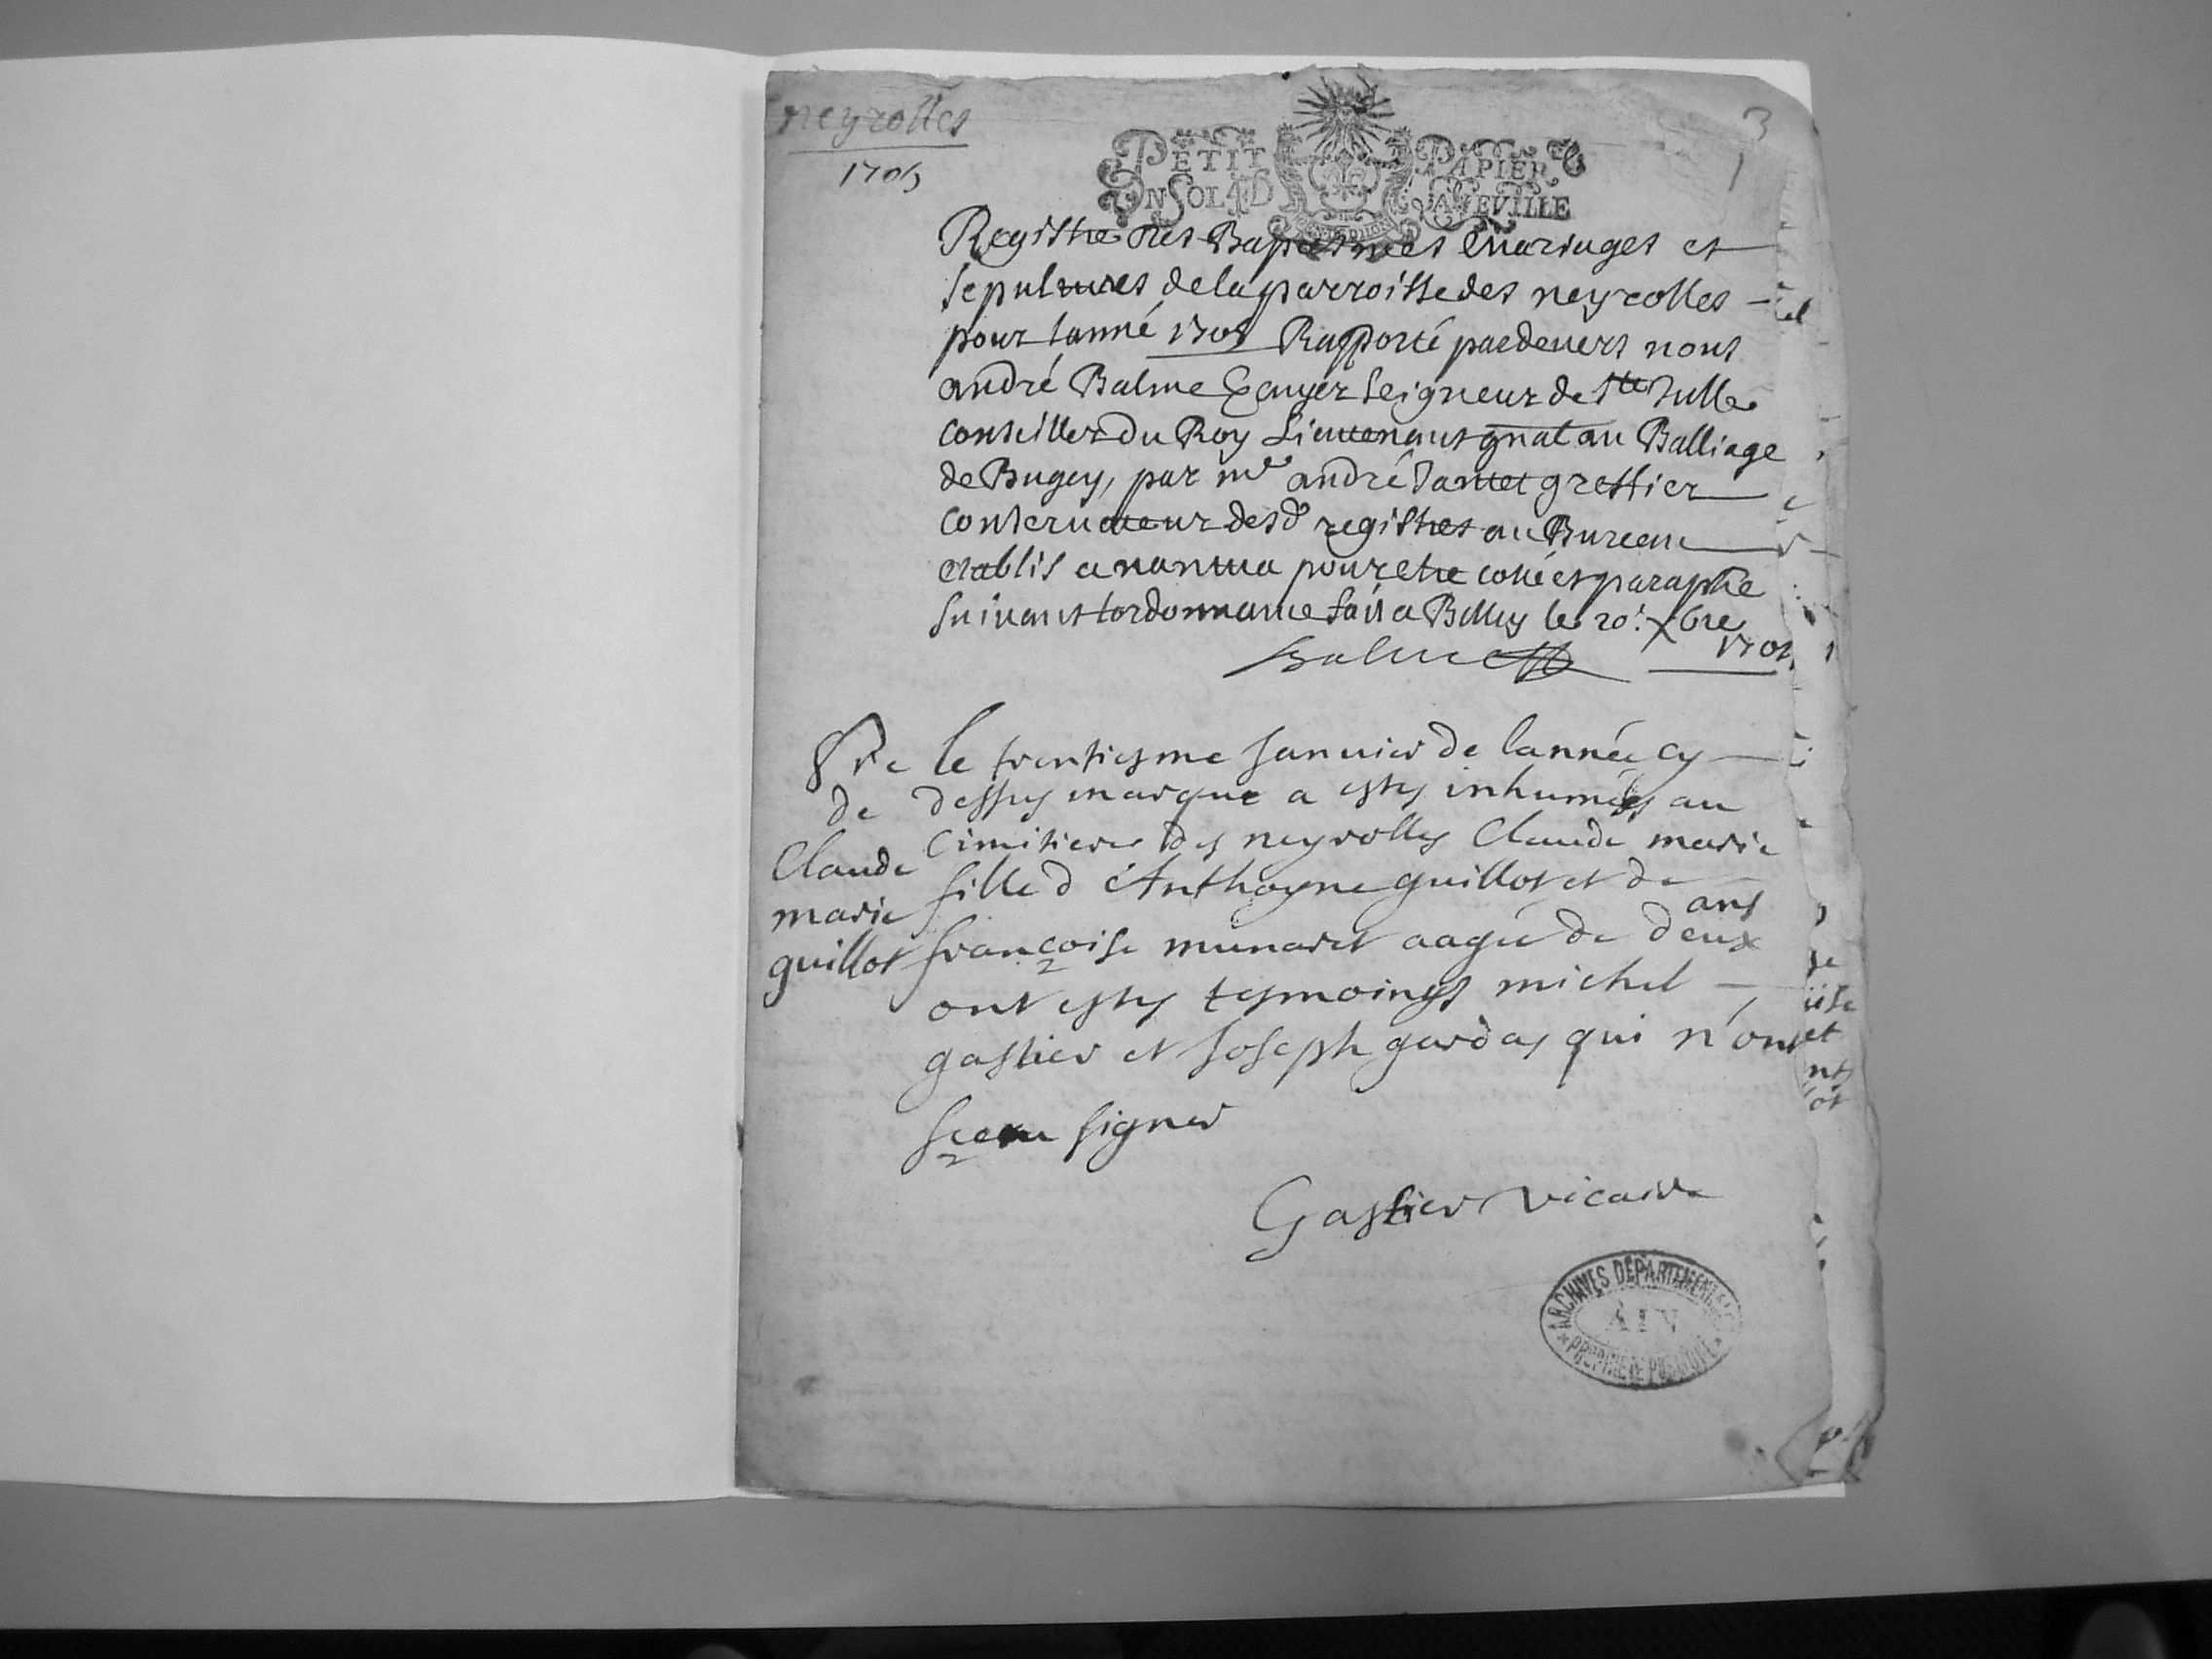 neyrolles
1705
3
1
PETIT PAPIER
UN SOL 4 D LA FEVILLE
Registre des Baptesmes Mariages et
sepultures de la parroisse des neyrolles
pour lanné 1705 Rapporté pardevers nous
andré Balme Ecuyer seigneur de Ste Julle
conseiller du Roy Lieutenant gnal au Balliage
de Bugey, par me andré Jantet greffier
conservateur desd registres au Bureau
etablis a nantua pour etre cotté et paraphe
suivant lordonnance fait a Belley le 20e Xbre
Balme
Sre le trentiesme Januier de lannée cy
de dessus marque a estes inhumées au
Claude Cimitiere des neyrolles Claude marie
marie fille d'Anthoyne guillot et de
ans
guillot françoise munaret aagée de deux
ont estes tesmoings michel
gastier et Joseph gardas qui n'ont
sceu signer
Gastier vicaire
ARCHIVES DEPARTEMENTALES
AIN
PROPRIETE PUBLIQUE